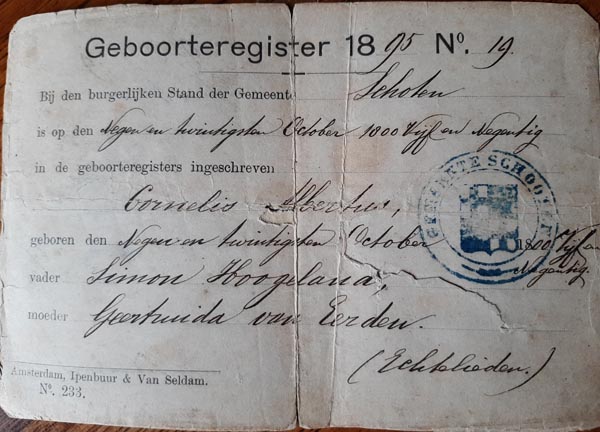 Geboorteregister 1895 No. 19.
Bij den burgerlijken Stand der Gemeente Schoten
is op den Negen en twintigsten October 1800 Vijf en Negentig
in de geboorteregisters ingeschreven
Cornelis Albertus,
geboren den Negen en twintigsten October 1800 Vijf en
Negentig.
vader Simon Hoogeland,
moeder Geertruida van Eerden.
(Echtelieden.)
Amsterdam, Ipenbuur & Van Seldam.
No. 233.
GEMEENTE SCHOOTEN